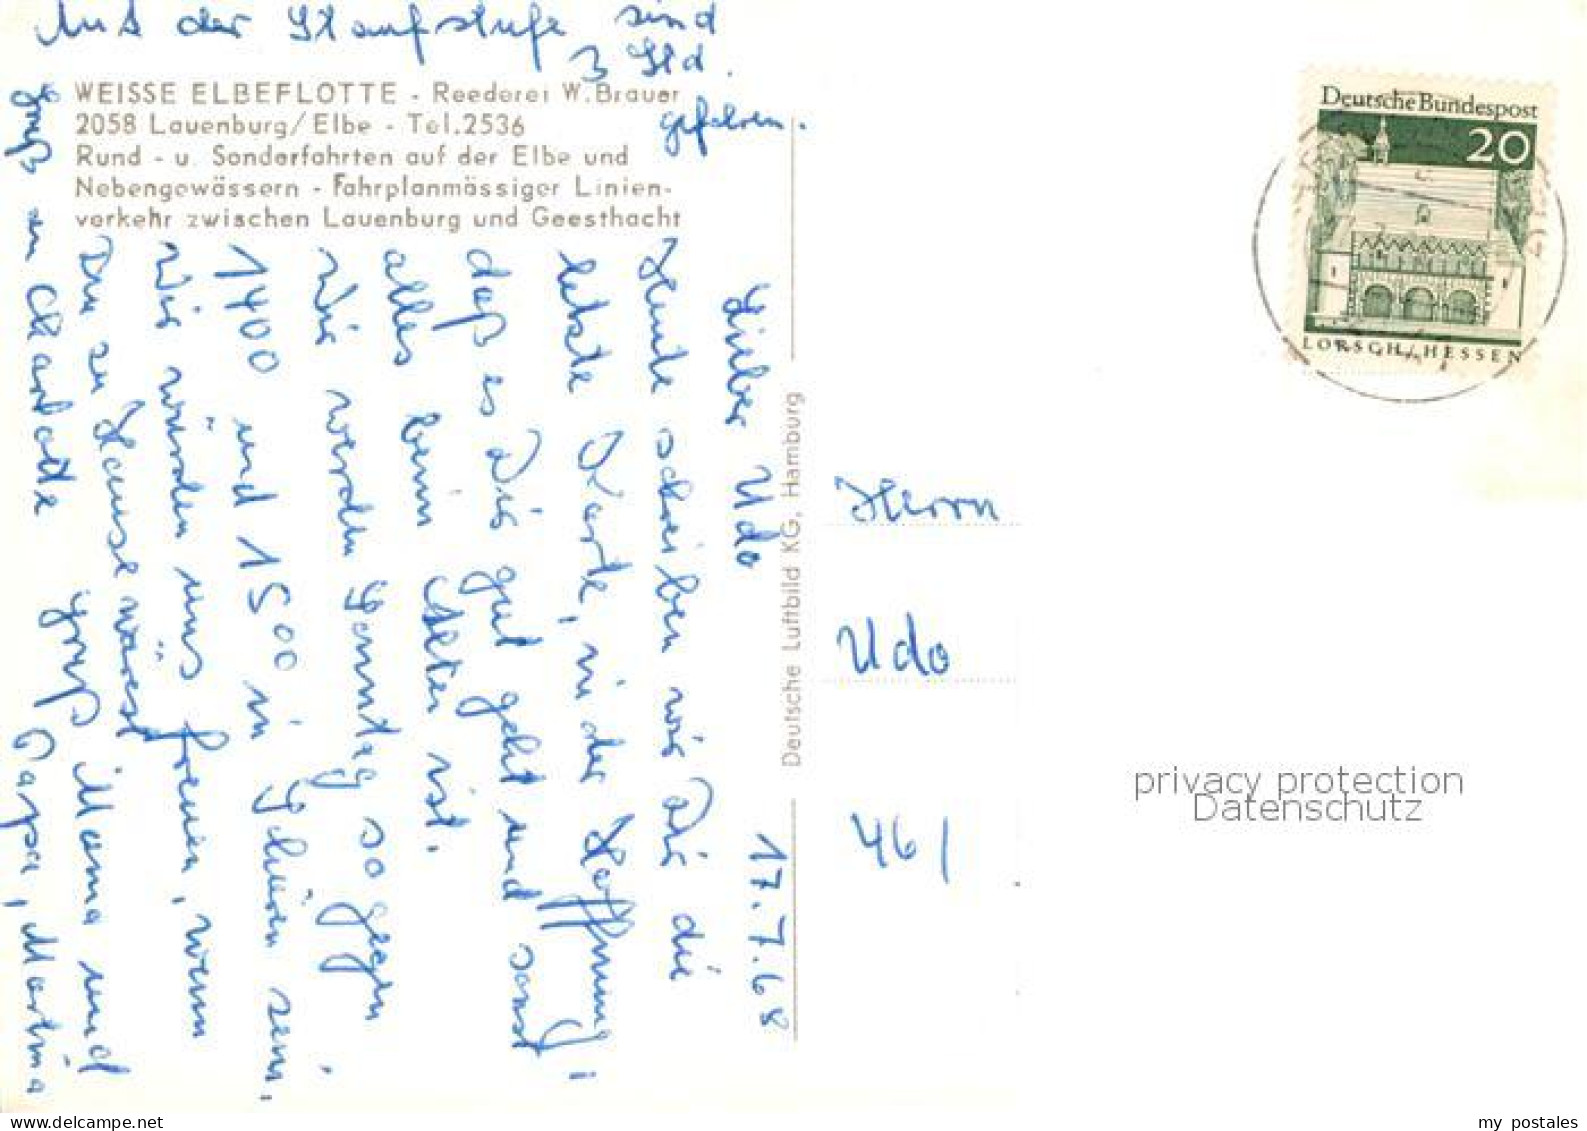 Aus der Staufstufe sind
3 Std.
gefahren.
WEISSE ELBEFLOTTE - Reederei W. Brauer
2058 Lauenburg/Elbe - Tel. 2536
Rund - u. Sonderfahrten auf der Elbe und
Nebengewässern - Fahrplanmässiger Linien-
verkehr zwischen Lauenburg und Geesthacht
17.7.68
Lieber Udo
Heute schreiben wir Dir die
letzte Karte, in der Hoffnung,
daß es Dir gut geht und sonst
alles beim Alten ist.
Wir werden Sonntag so gegen
1400 und 1500 in sein,
Wir würden uns freuen, wenn
Du zu Hause wärest
Gruß Mama und
Papa, Martina
Gruß an Charlotte
Deutsche Luftbild KG, Hamburg
Deutsche Bundespost
20
LORSCH/HESSEN
Herrn
Udo
461
privacy protection
Datenschutz
my postales